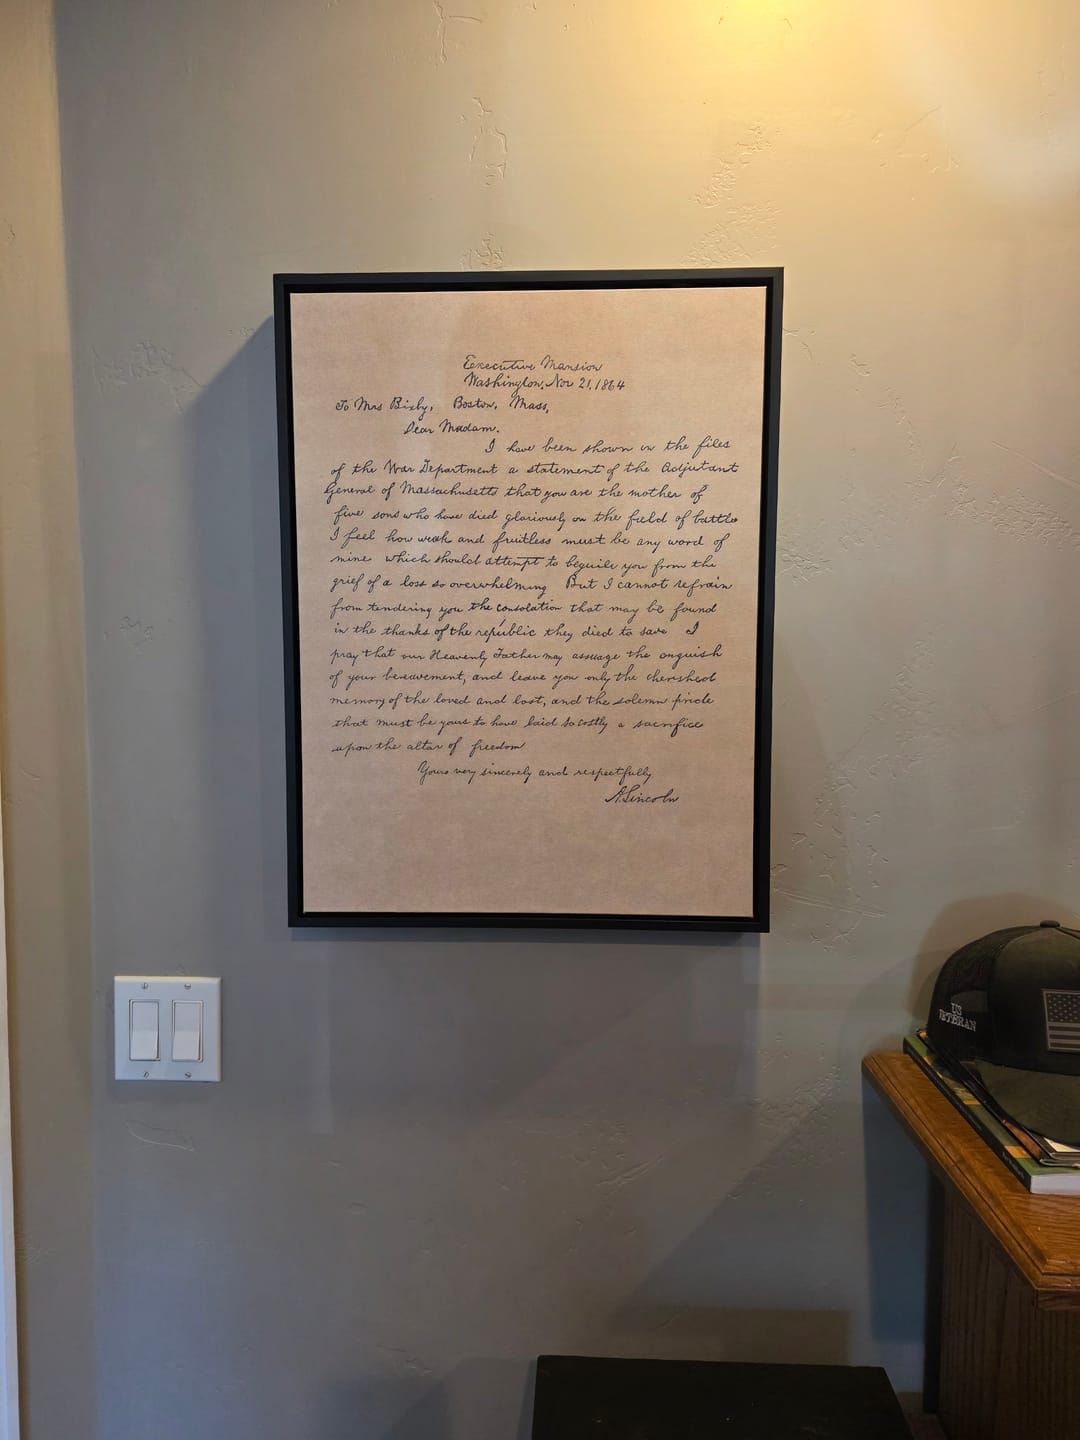 Executive Mansion
Washington, Nov 21, 1864
To Mrs Bixby, Boston, Mass,
Dear Madam.
I have been shown in the files
of the War Department a statement of the Adjutant
General of Massachusetts that you are the mother of
five sons who have died gloriously on the field of battle
I feel how weak and fruitless must be any word of
mine which should attempt to beguile you from the
grief of a loss so overwhelming But I cannot refrain
from tendering you the consolation that may be found
in the thanks of the republic they died to save I
pray that our Heavenly Father may assuage the anguish
of your bereavement, and leave you only the cherished
memory of the loved and lost, and the solemn pride
that must be yours to have laid so costly a sacrifice
upon the altar of freedom
Yours very sincerely and respectfully
A. Lincoln
US
VETERAN